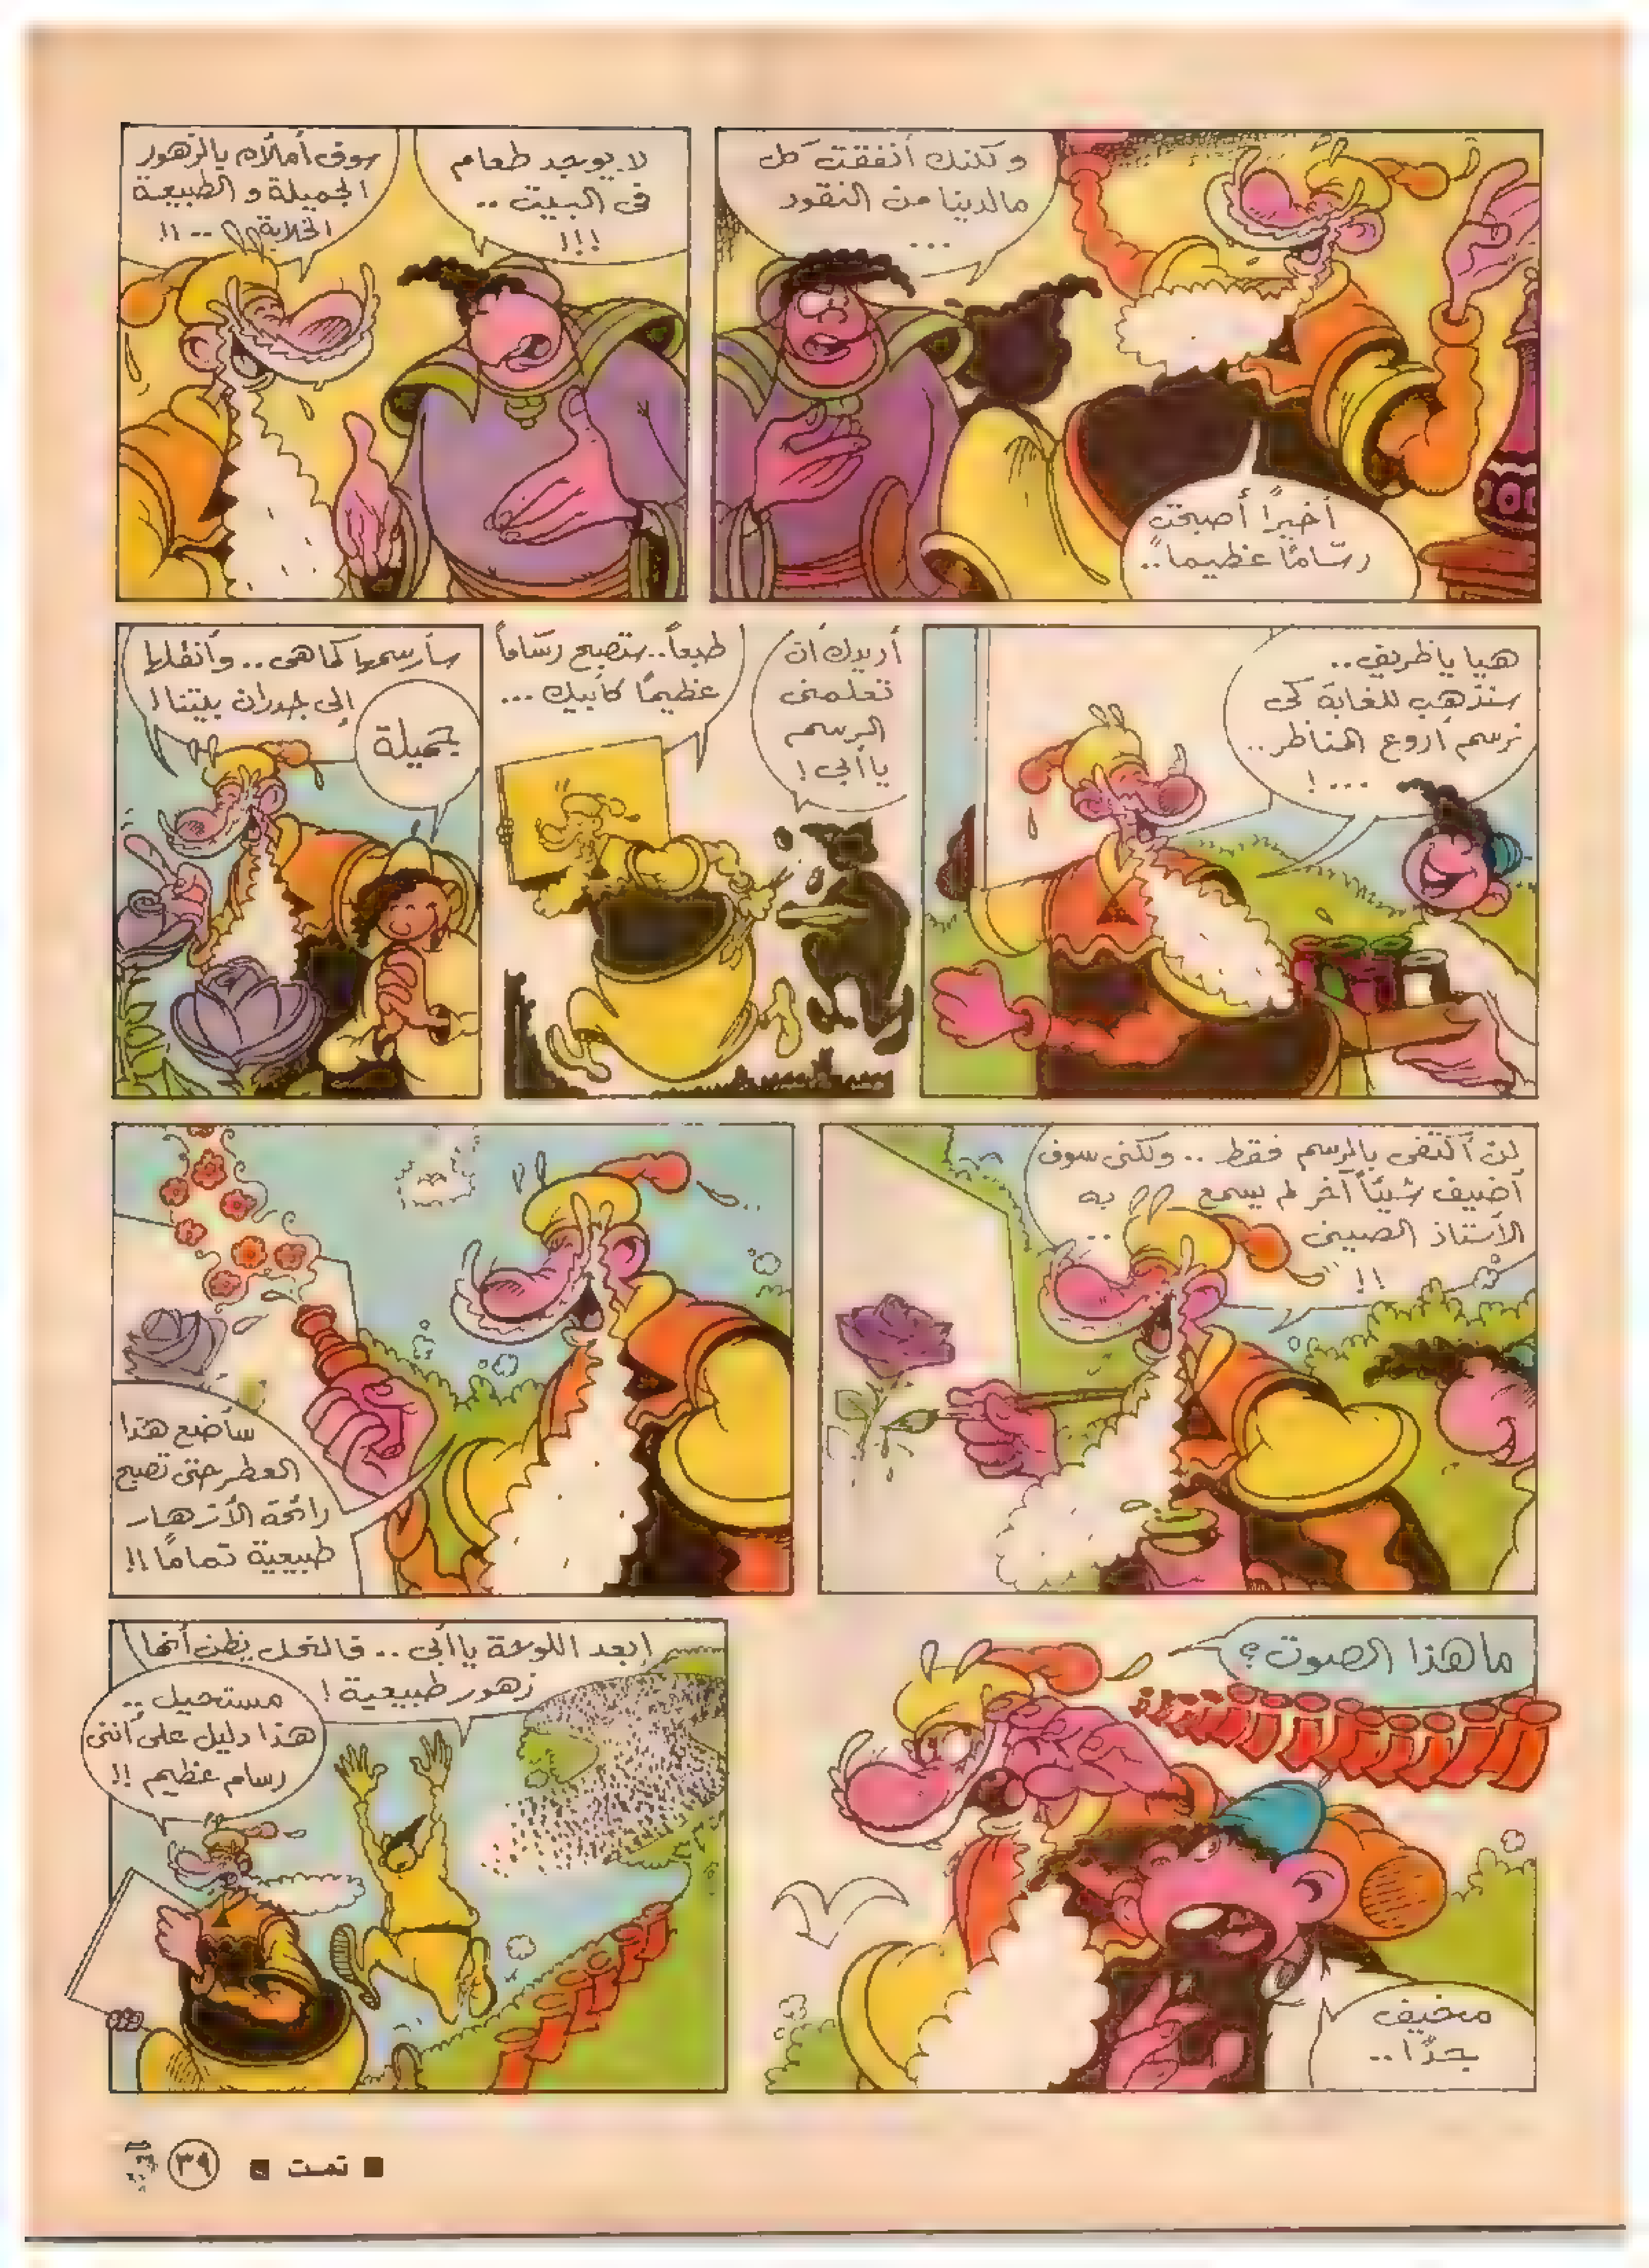 أخيراً أصبحت
رسّامًا عظيماً..
ولكنك أنفقت كل
مالدينا من النقود
...
لا يوجد طعام
فى البيت ..
!!!
سوف أملأه بالزهور
الجميلة و الطبيعة
الخلابة .. !!
هيا يا ظريف..
سنذهب للغابة كى
نرسم أروع المناظر..
... !
أريدك أن
تعلمنى
الرسم
يا أبى !
طبعاً.. ستصبح رسّاماً
عظيمًا كأبيك ...
سأرسمها كما هى .. وأنقلها
إلى جدران بيتنا !
جميلة
لن أكتفى بالرسم فقط .. ولكنى سوف
أضيف شيئاً آخر لم يسمع به
الأستاذ الصينى ..
!!
سأضع هذا
العطر حتى تصبح
رائحة الأزهار
طبيعية تمامًا !!
ما هذا الصوت ؟
مخيف
جدًّا ..
إبعد اللوحة يا أبى .. فالنحل يظن أنها
زهور طبيعية !
مستحيل ..
هذا دليل على أننى
رسام عظيم !!
■ تمت ■
٣٩